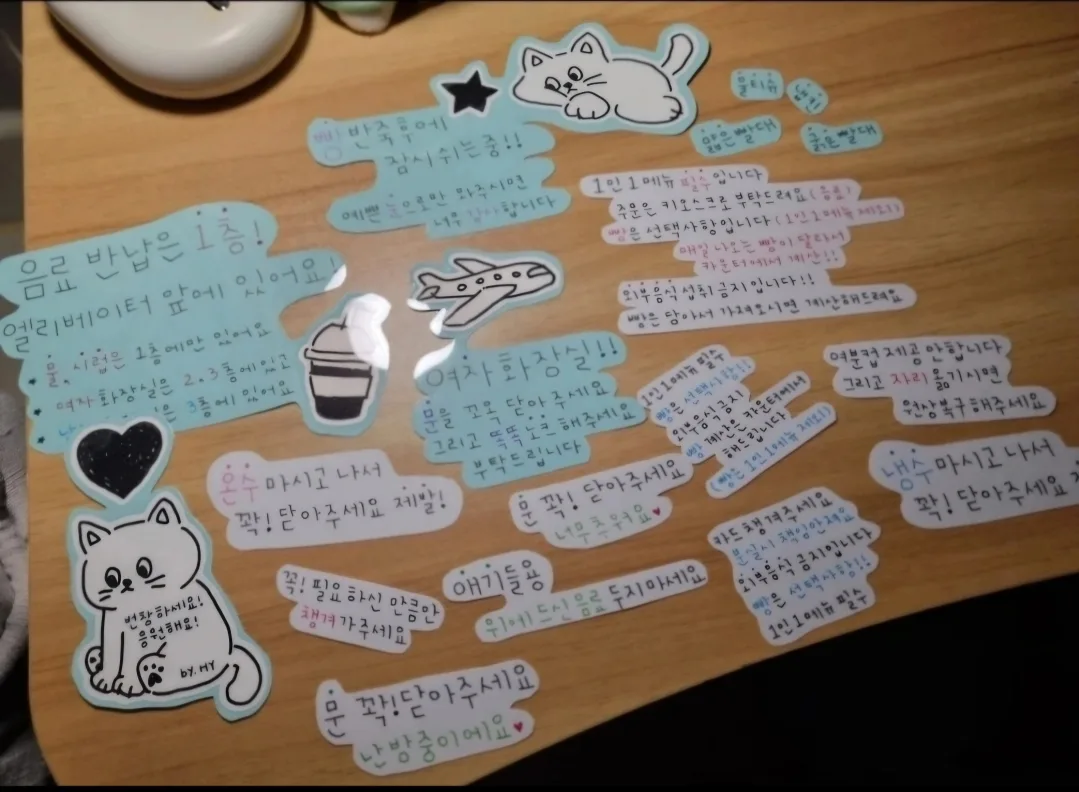 물티슈
냅킨
얇은빨대
굵은빨대
빵 반죽 후에
잠시 쉬는 중!!
예쁜 눈으로만 봐주시면
너무 감사합니다
1인 1메뉴 필수입니다
주문은 키오스크로 부탁드려요(음료)
빵은 선택사항입니다(1인1메뉴 제외)
매일 나오는 빵이 달라서
카운터에서 계산!!
외부음식 섭취 금지입니다!!
빵은 담아서 가져오시면 계산해드려요
음료 반납은 1층!
엘리베이터 앞에 있어요!
물, 시럽은 1층에만 있어요
여자 화장실은 2.3층에 있고
은 3층에 있어요
여자 화장실!!
문을 꼬옥 닫아주세요
그리고 똑똑노크해주세요
부탁드립니다
1인1메뉴 필수
빵은 선택사항!!
외부음식 금지
빵 계산은 카운터에서
해드립니다
(빵은 1인1메뉴 제외)
여분컵 제공 안합니다
그리고 자리 옮기시면
원상복구 해주세요
온수 마시고 나서
꽉! 닫아주세요 제발!
문 꽉! 닫아주세요
너무 추워요♥
냉수 마시고 나서
꽉! 닫아주세요
카드 챙겨주세요
분실시 책임안져요
외부음식 금지입니다
빵은 선택사항!!
1인1메뉴 필수
꼭! 필요하신 만큼만
챙겨가주세요
애기들용
위에 드신 음료 두지마세요
번창하세요!
응원해요!
by. HY
문 꽉! 닫아주세요
난방중이에요♥